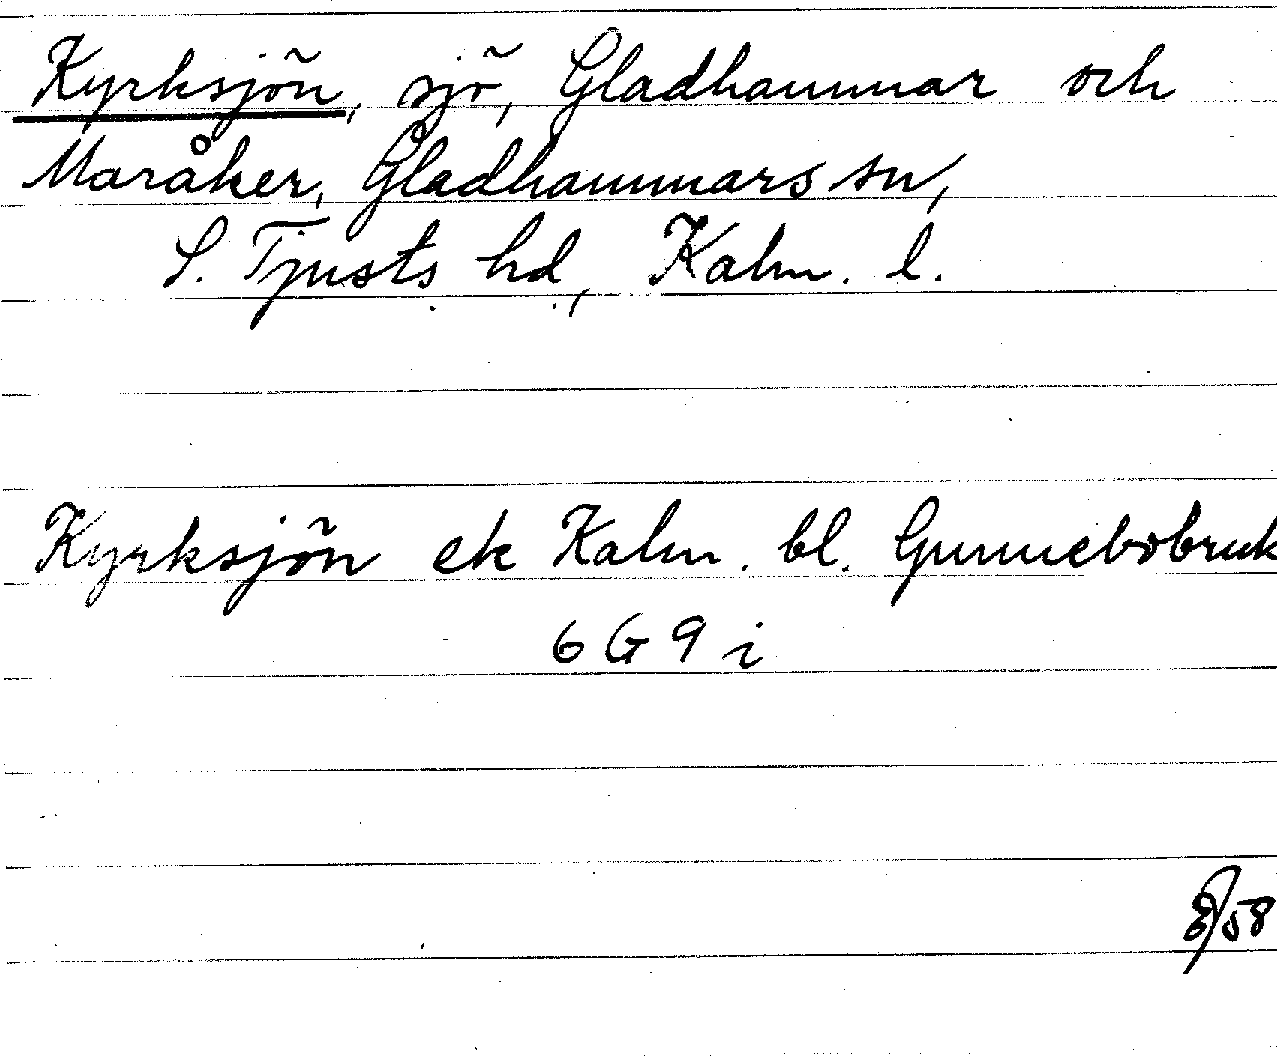 Kyrksjön, sjö, Gladhammar och
Maråker, Gladhammars sn,
S. Tjusts hd, Kalm. l.
Kyrksjön ek Kalm. bl. Gunnebobruk
6 G 9 i
/58